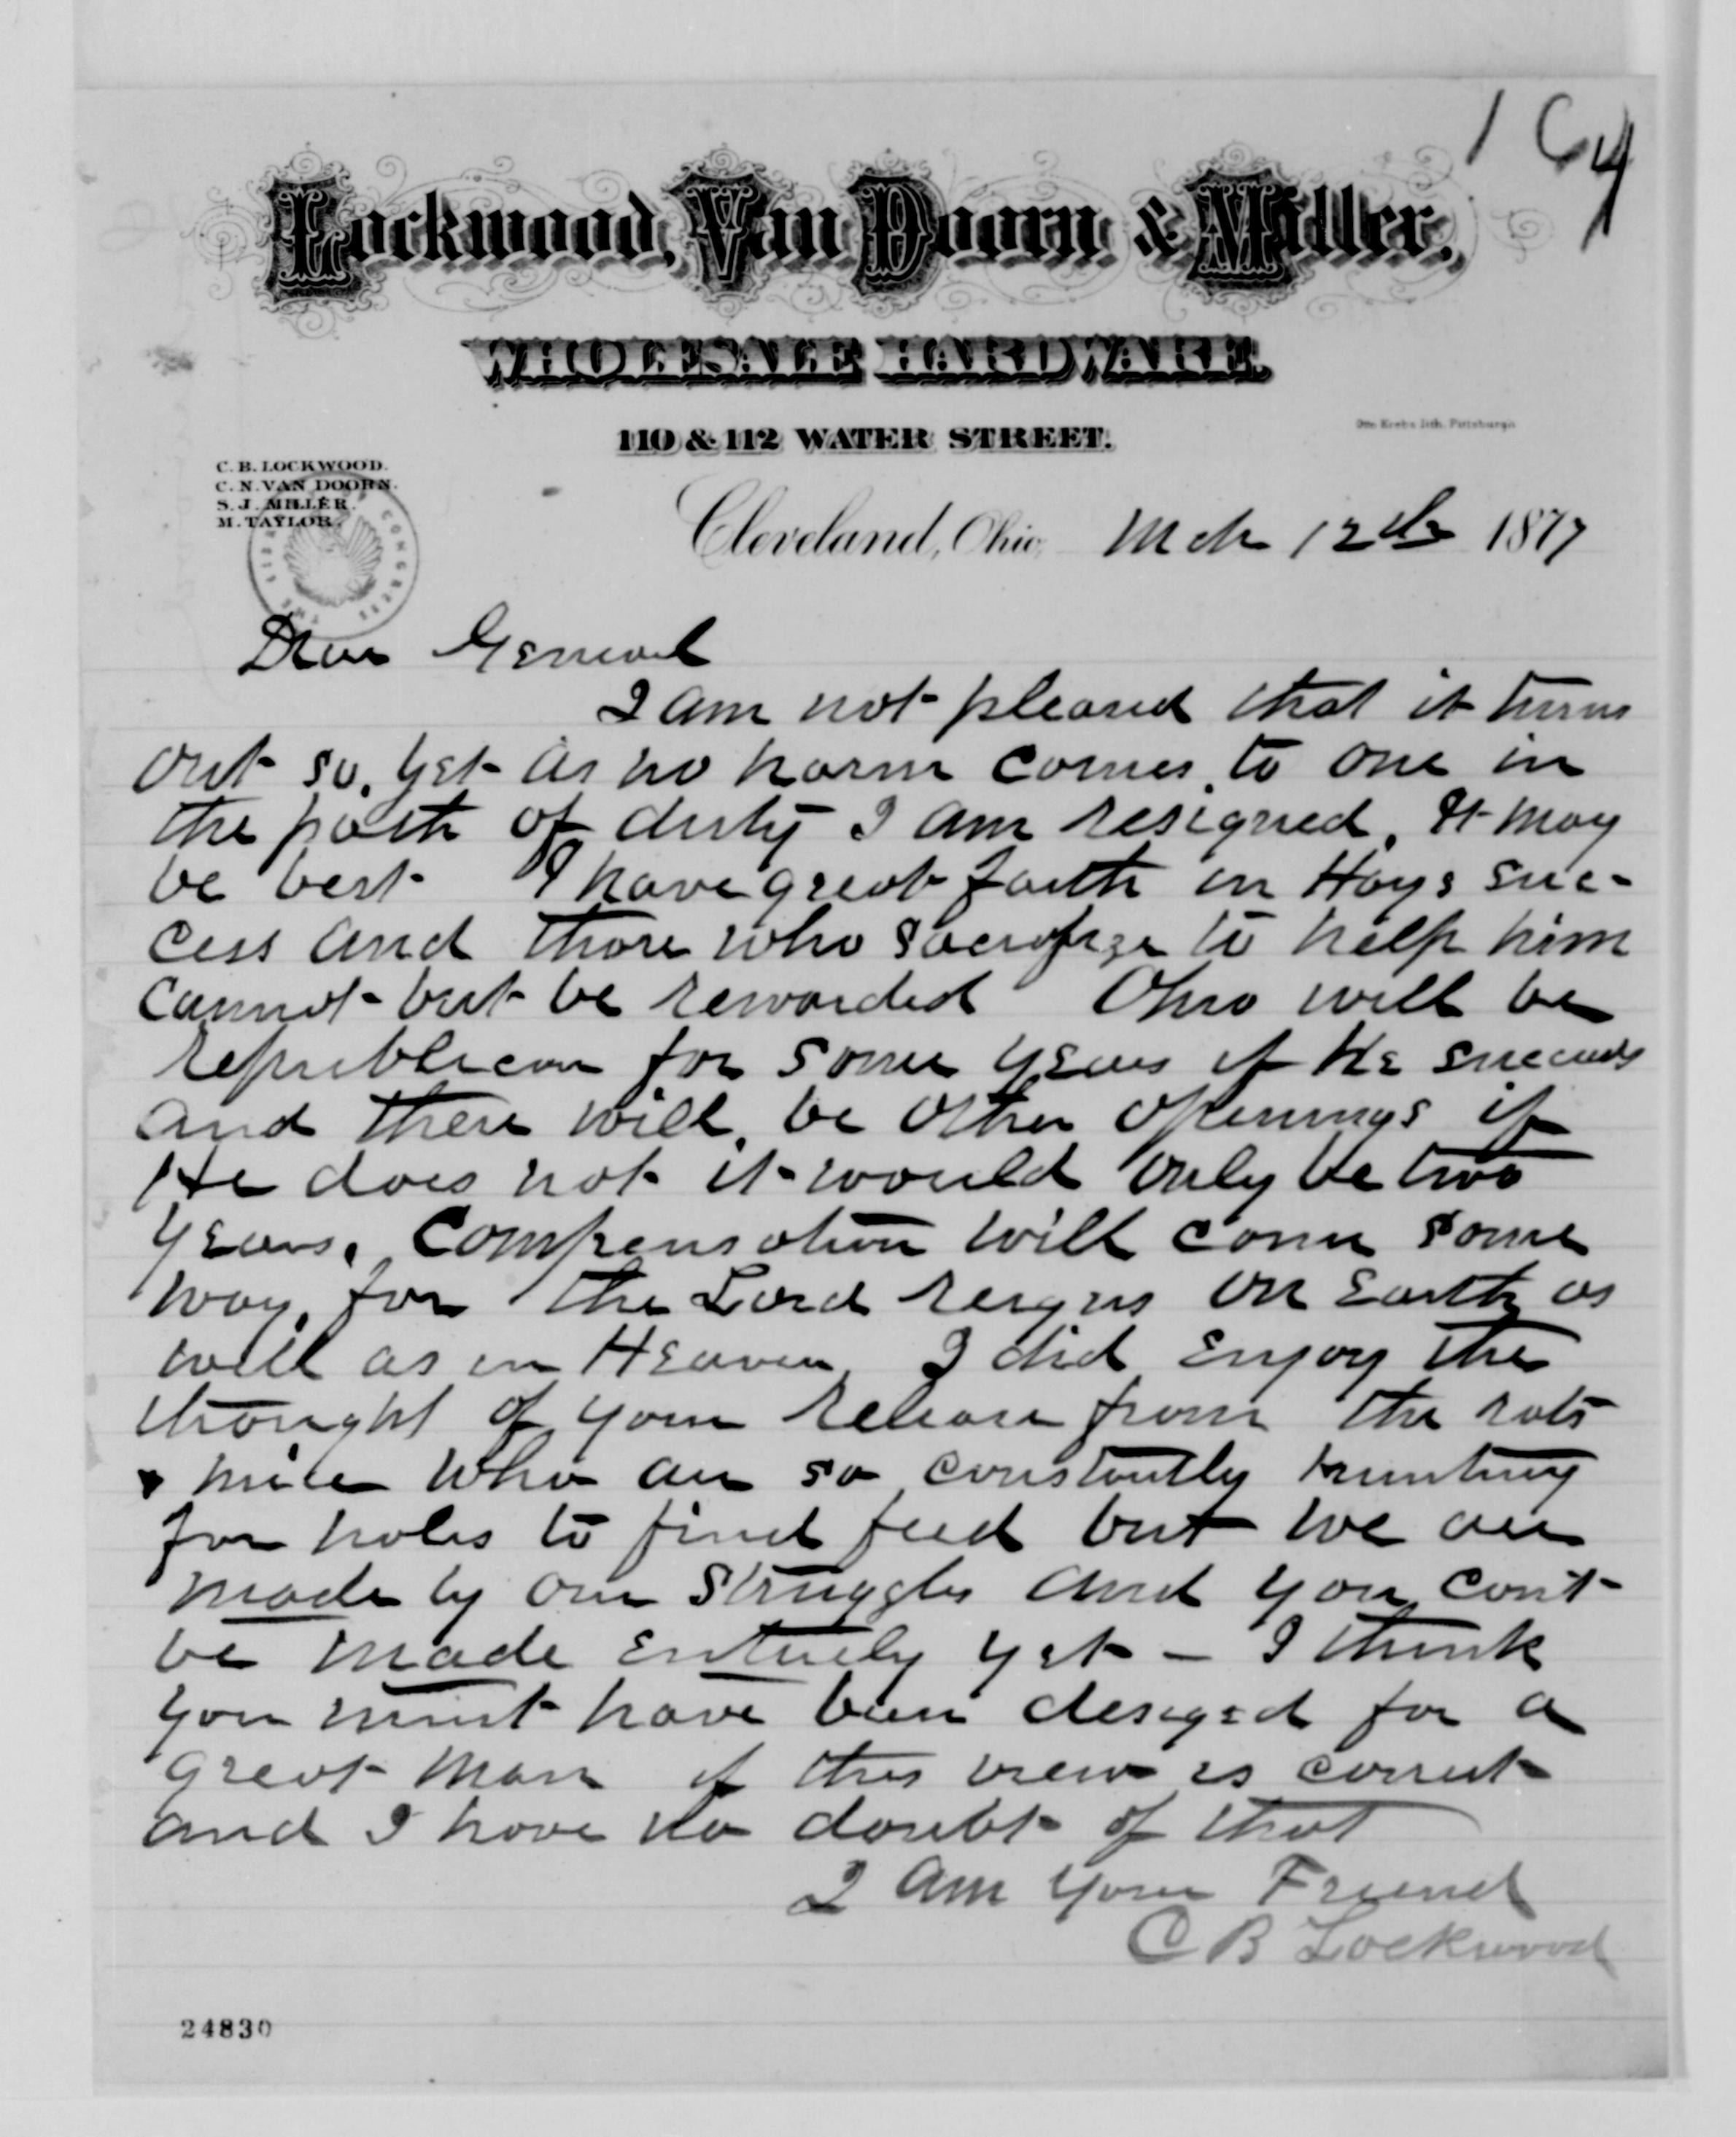 164
Lockwood, Van Doorn & Miller,
WHOLESALE HARDWARE.
110 & 112 WATER STREET.
Otto Krebs Lith. Pittsburgh
C. B. LOCKWOOD.
C. N. VAN DOORN.
S. J. MILLER.
M. TAYLOR.
THE LIBRARY CONGRESS
Cleveland, Ohio, Mch 12th 1877
Dear General
I am not pleased that it turns
out so, yet as no harm comes to one in
the path of duty I am resigned. It may
be best. I have great faith in Hays suc-
cess and those who sacrifize to help him
cannot but be rewarded Ohio will be
republican for some years if he succeeds
and there will be other openings if
He does not it would only be two
years. Compensation will come some
way, for the Lord reigns on Earth as
well as in Heaven I did enjoy the
thought of your release from the rats
& mice who are so constantly hunting
for holes to find feed but we are
made by our struggles and you cant
be made entirely yet – I think
you must have been desiged for a
great man if this view is correct
and I have no doubt of that
I am your Friend
C B Lockwood
24830